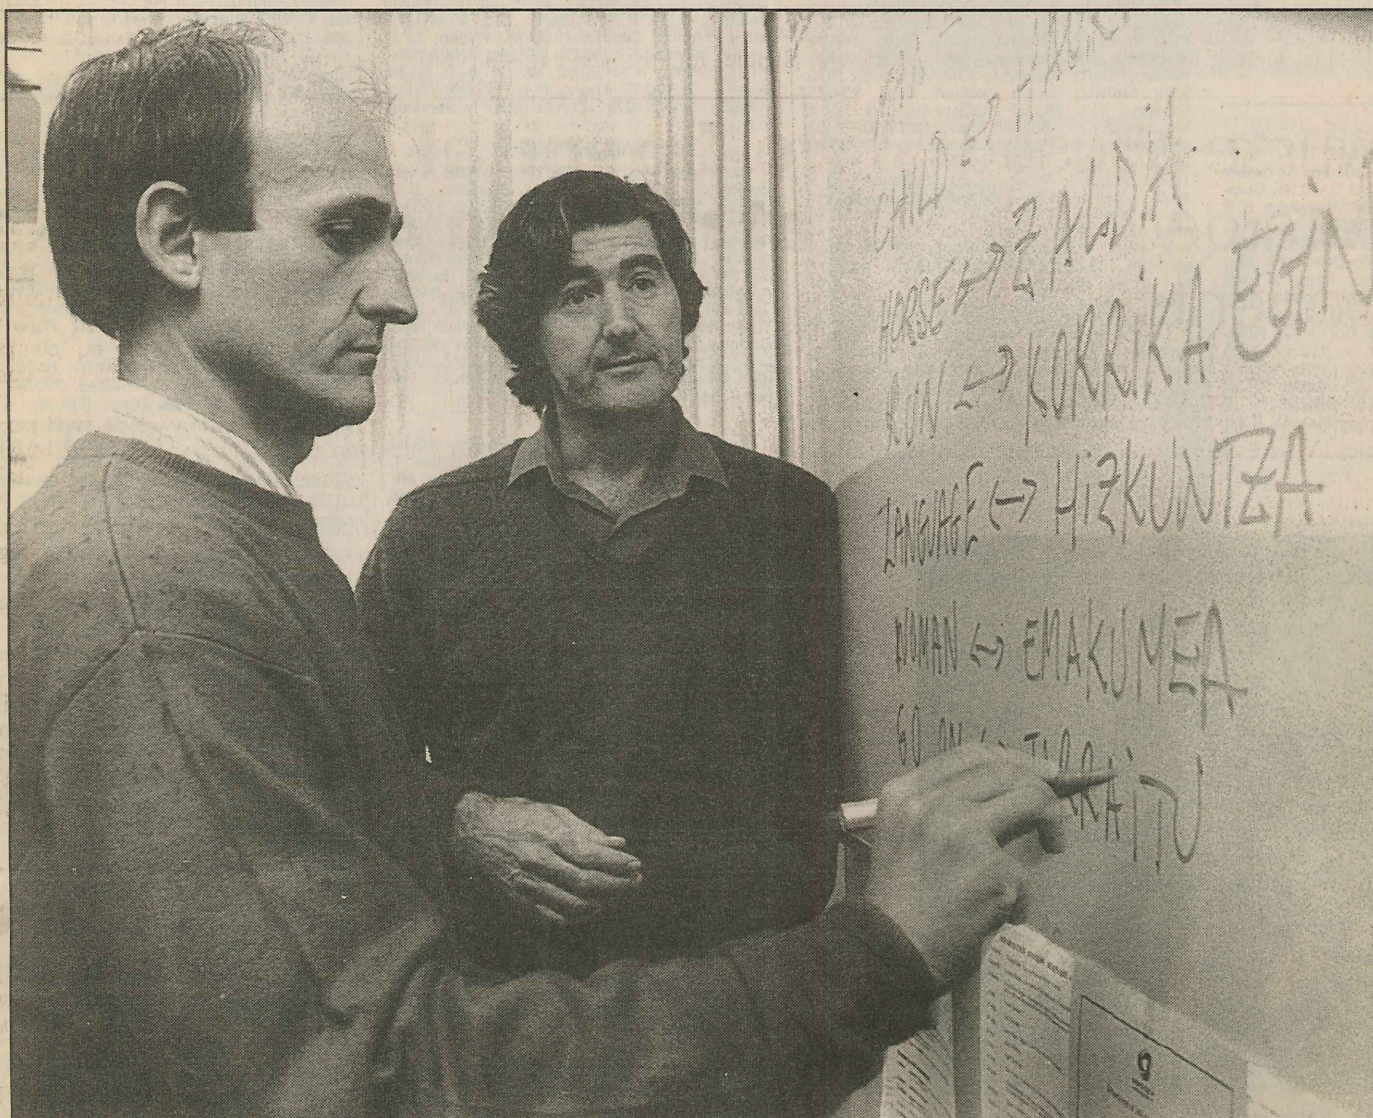 CHILD ↔
HORSE ↔ ZALDIA
RUN ↔ KORRIKA EGIN
LANGUAGE ↔ HIZKUNTZA
WOMAN ↔ EMAKUMEA
GO ON ↔ JARRAITU